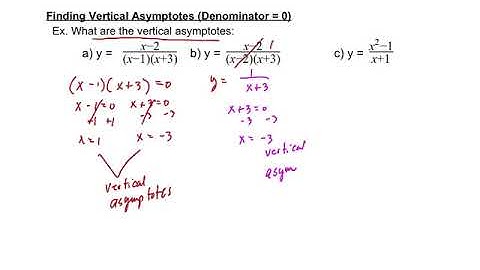 Finding Vertical Asymptotes (Denominator = 0)
Ex. What are the vertical asymptotes:
a) y = x−2/(x−1)(x+3) b) y = x−2 1/(x−2)(x+3) c) y = x²−1/x+1
(x−1)(x+3)=0 y = 1/x+3
x−1=0 x+3=0 x+3=0
+1 +1 −3 −3 −3 −3
x=1 x=−3 x=−3
vertical
asymptotes
vertical
asym